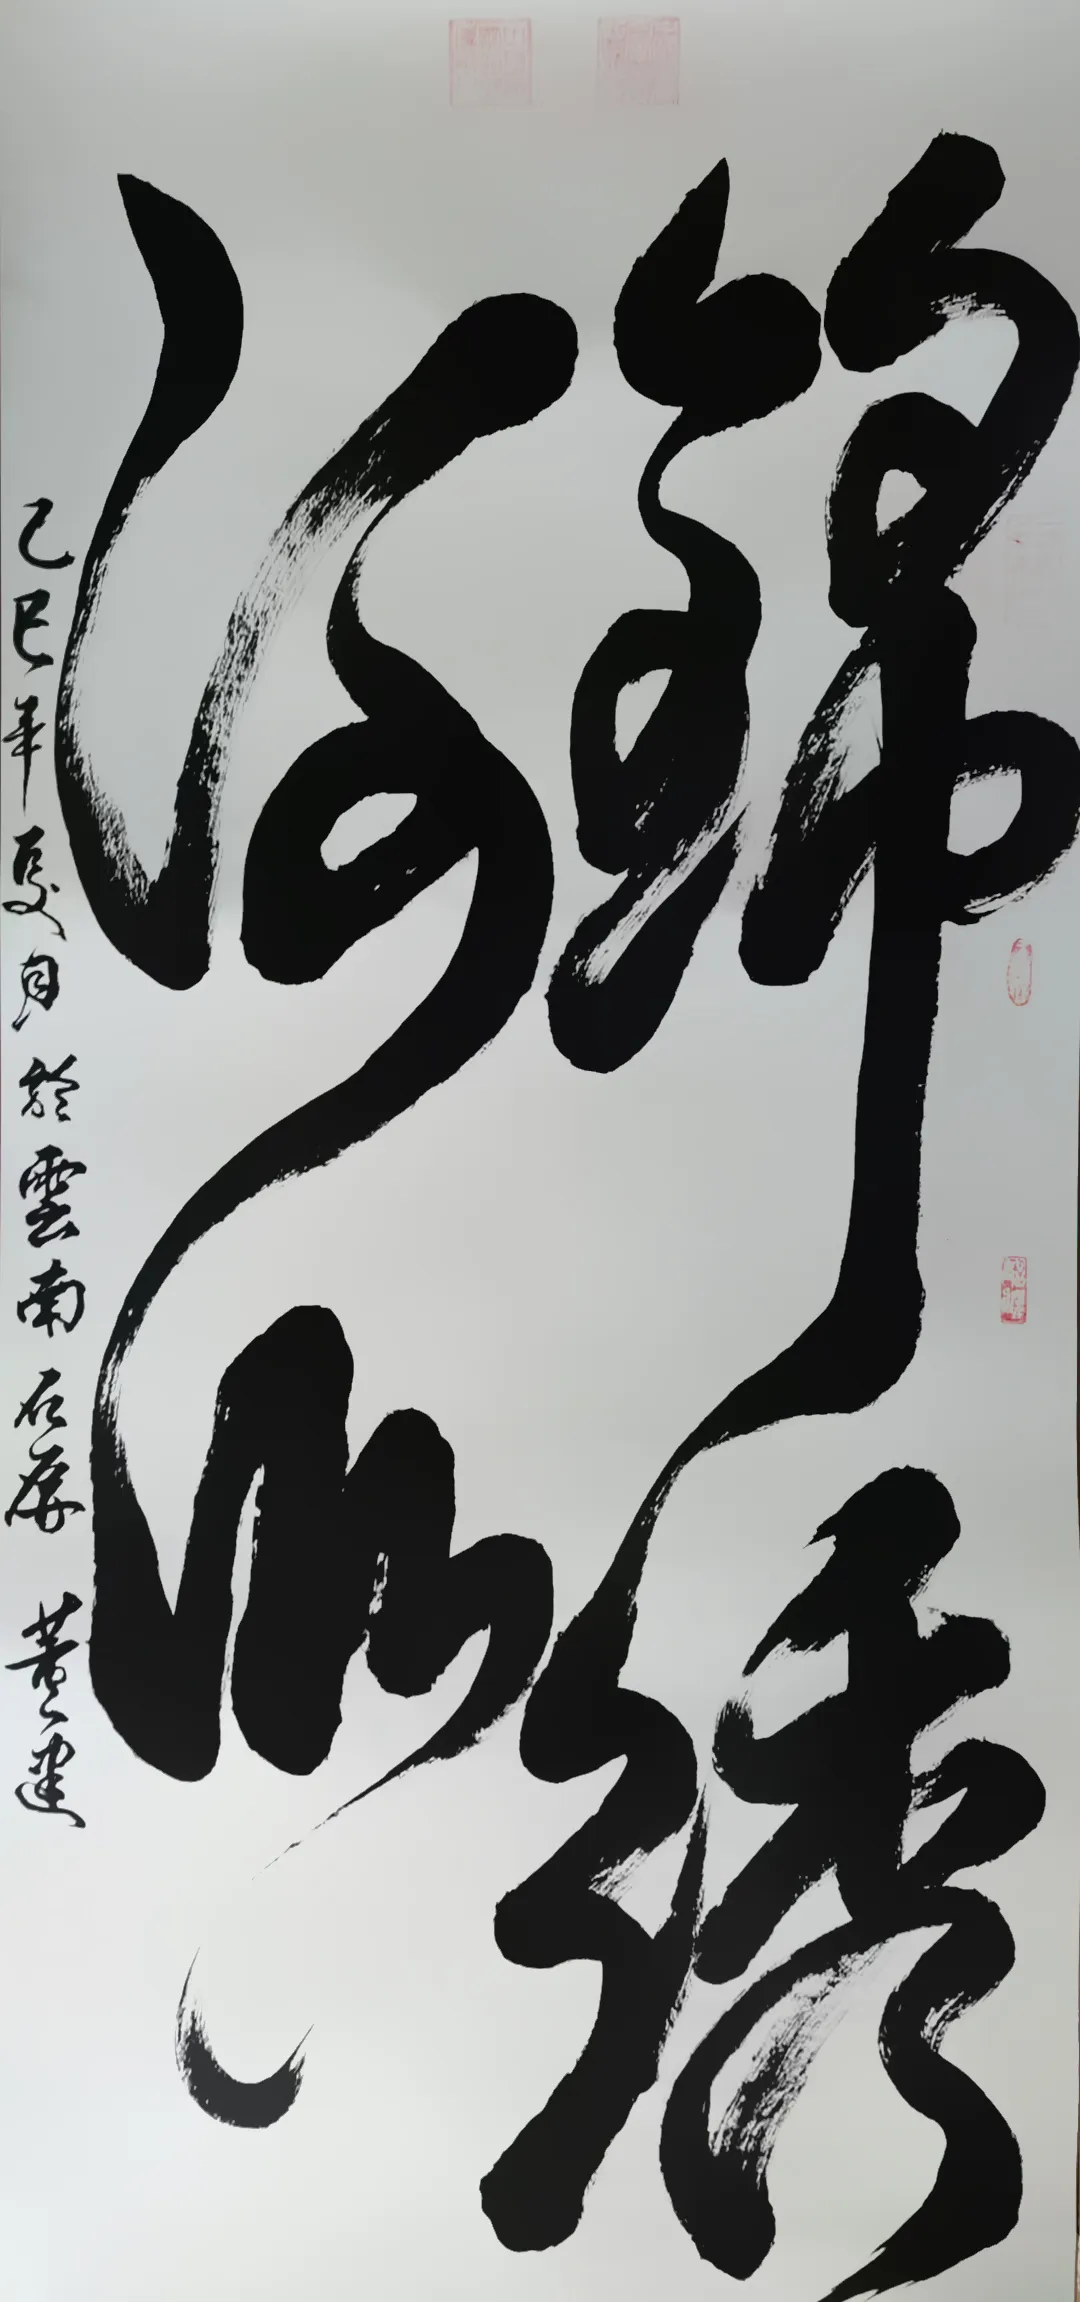 錦繡
河山
乙巳年夏月於雲南石屏 黄建